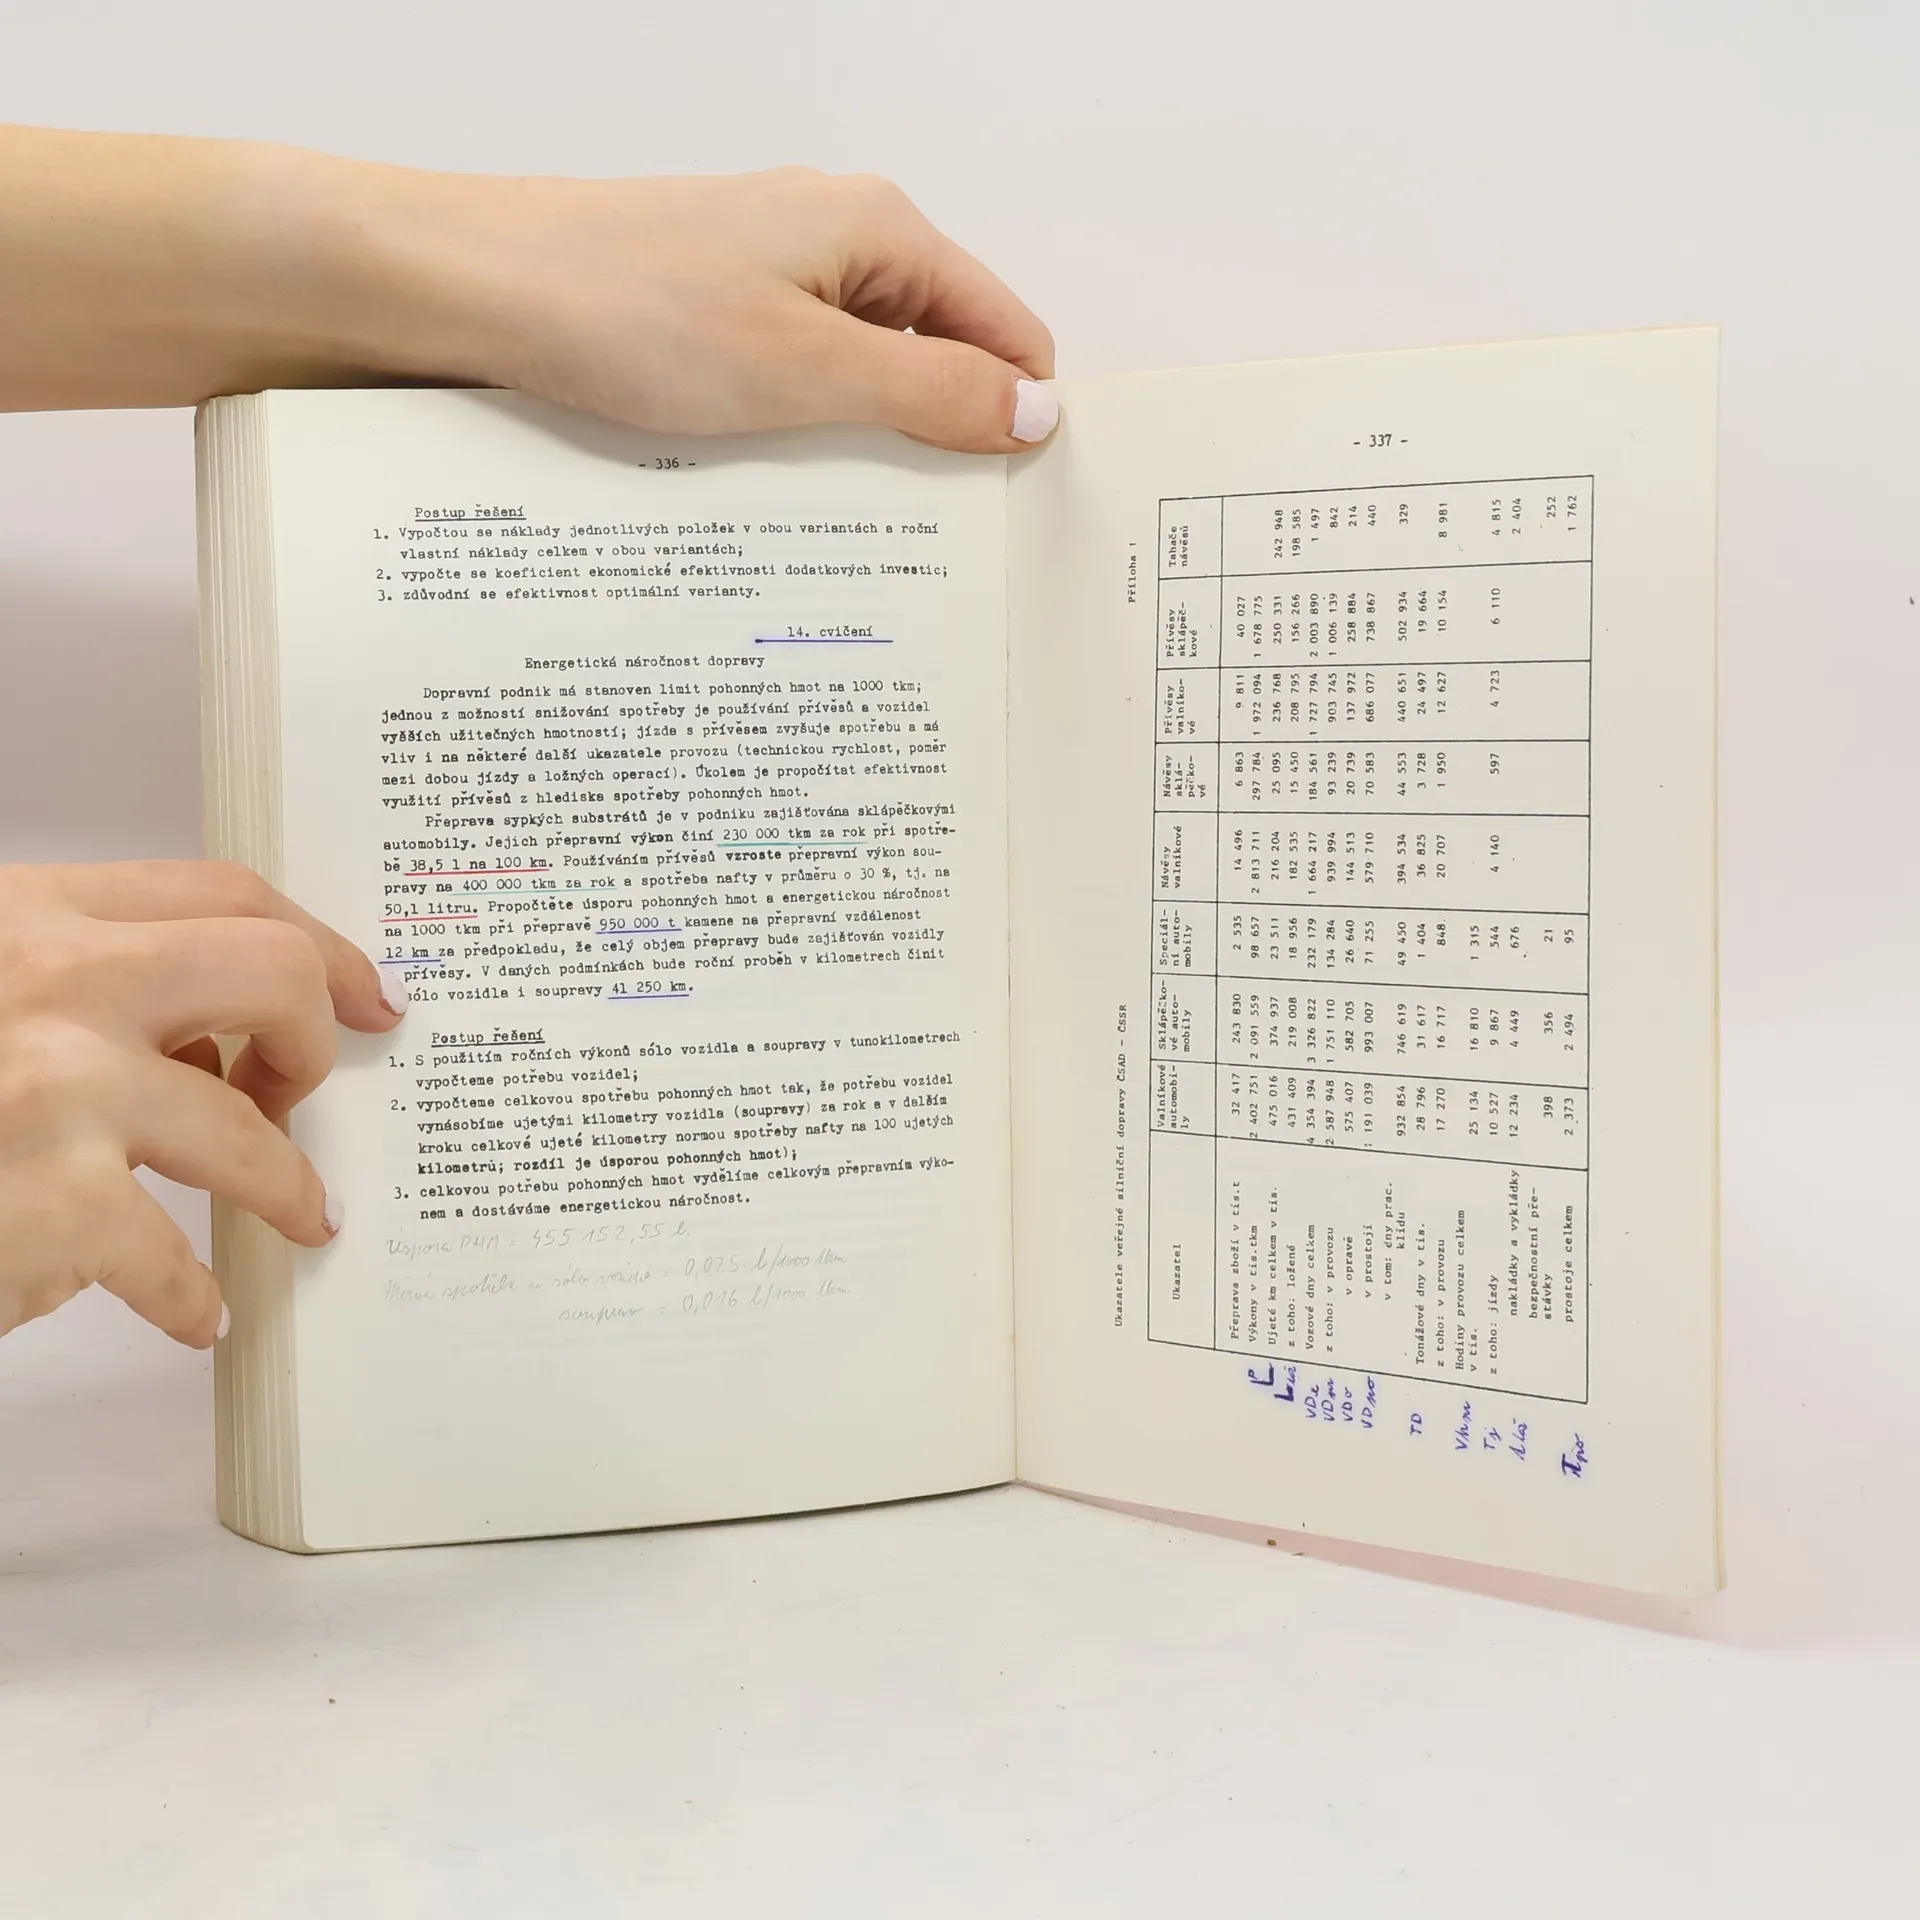 - 336 -
Postup řešení
1. Vypočtou se náklady jednotlivých položek v obou variantách a roční
vlastní náklady celkem v obou variantách;
2. vypočte se koeficient ekonomické efektivnosti dodatkových investic;
3. zdůvodní se efektivnost optimální varianty.
14. cvičení
Energetická náročnost dopravy
Dopravní podnik má stanoven limit pohonných hmot na 1000 tkm;
jednou z možností snižování spotřeby je používání přívěsů a vozidel
vyšších užitečných hmotností; jízda s přívěsem zvyšuje spotřebu a má
vliv i na některé další ukazatele provozu (technickou rychlost, poměr
mezi dobou jízdy a ložných operací). Úkolem je propočítat efektivnost
využití přívěsů z hlediska spotřeby pohonných hmot.
Přeprava sypkých substrátů je v podniku zajišťována sklápěčkovými
automobily. Jejich přepravní výkon činí 230 000 tkm za rok při spotře-
bě 38,5 l na 100 km. Používáním přívěsů vzroste přepravní výkon sou-
pravy na 400 000 tkm za rok a spotřeba nafty v průměru o 30 %, tj. na
50,1 litru. Propočtěte úsporu pohonných hmot a energetickou náročnost
na 1000 tkm při přepravě 950 000 t kamene na přepravní vzdálenost
12 km za předpokladu, že celý objem přepravy bude zajišťován vozidly
přívěsy. V daných podmínkách bude roční proběh v kilometrech činit
sólo vozidla i soupravy 41 250 km.
Postup řešení
1. S použitím ročních výkonů sólo vozidla a soupravy v tunokilometrech
vypočteme potřebu vozidel;
2. vypočteme celkovou spotřebu pohonných hmot tak, že potřebu vozidel
vynásobíme ujetými kilometry vozidla (soupravy) za rok a v dalším
kroku celkové ujeté kilometry normou spotřeby nafty na 100 ujetých
kilometrů; rozdíl je úsporou pohonných hmot);
3. celkovou potřebu pohonných hmot vydělíme celkovým přepravním výko-
nem a dostáváme energetickou náročnost.
Úspora PHM = 455 152,55 l.
Měrná spotřeba u sólo vozidla = 0,025 l/1000 tkm
souprav = 0,016 l/1000 tkm
- 337 -
Příloha 1
Ukazatele veřejné silniční dopravy ČSAD - ČSSR
Ukazatel Valníkové automobi-ly Sklápěčko-vé auto-mobily Speciál-ní auto-mobily Návěsy valníkové Návěsy sklá-pěčko-vé Přívěsy valníko-vé Přívěsy sklápěč-kové Tahače návěsů
Přeprava zboží v tis.t 32 417 243 830 2 535 14 496 6 863 9 811 40 027
Výkony v tis.tkm 2 402 751 2 091 559 98 657 2 813 711 297 784 1 972 094 1 678 775
L Ujeté km celkem v tis. 475 016 374 937 23 511 216 204 25 095 236 768 250 331 242 948
z toho: ložené 431 409 219 008 18 956 182 535 15 450 208 795 156 266 198 585
VDe Vozové dny celkem 4 354 394 3 326 822 232 179 1 664 217 184 561 1 727 794 2 003 890 1 497
z toho: v provozu 2 587 948 1 751 110 134 284 939 994 93 239 903 745 1 006 139 842
VDo v opravě 575 407 582 705 26 640 144 513 20 739 137 972 258 884 214
v prostoji 1 191 039 993 007 71 255 579 710 70 583 686 077 738 867 440
v tom: dny prac.
klidu 932 854 746 619 49 450 394 534 44 553 440 651 502 934 329
TD Tonážové dny v tis. 28 796 31 617 1 404 36 825 3 728 24 497 19 664
z toho: v provozu 17 270 16 717 848 20 707 1 950 12 627 10 154 8 981
Hodiny provozu celkem
v tis. 25 134 16 810 1 315
Tj z toho: jízdy 10 527 9 867 544 4 140 597 4 723 6 110 4 815
nakládky a vykládky 12 234 4 449 676 2 404
bezpečnostní pře-
stávky 398 356 21 252
prostoje celkem 2 373 2 494 95 1 762